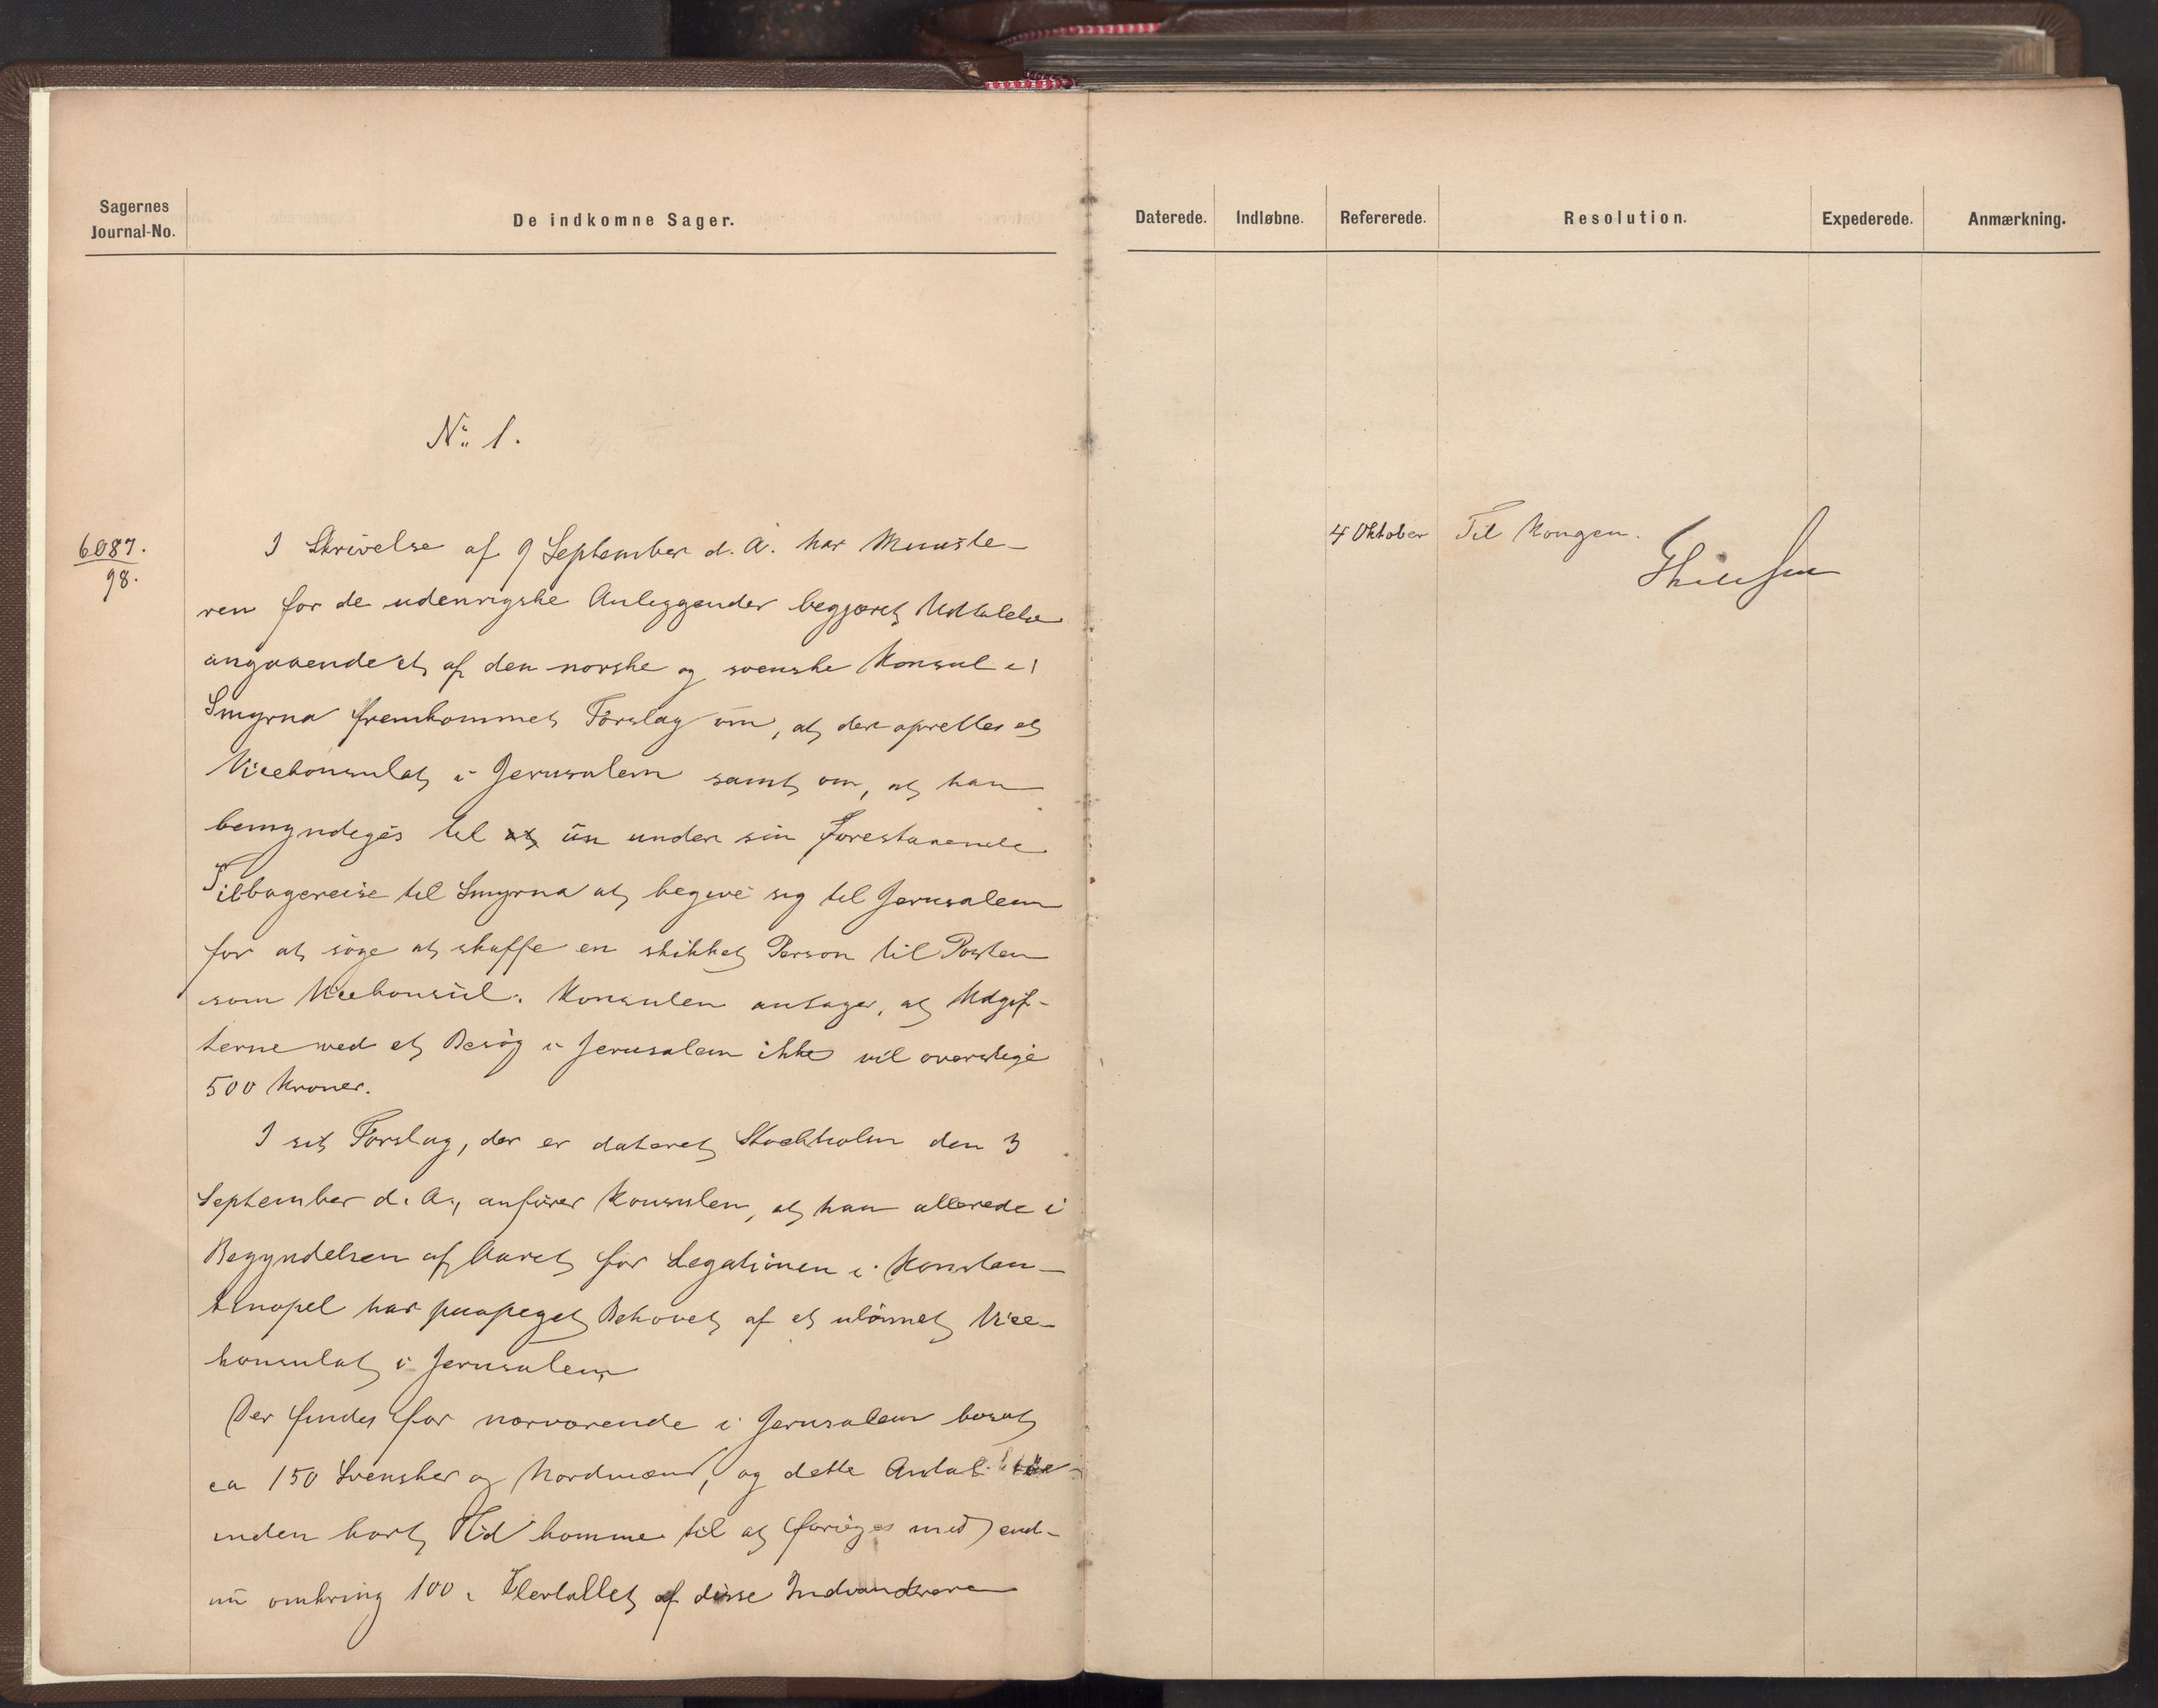 Sagernes
Journal-No.
De indkomne Sager.
No 1.
6087.
98.
I Skrivelse af 9 September d. A. har Ministe-
ren for de udenrigske Anliggender begjæret Udtalelse
angaaende et af den norske og svenske Konsul i
Smyrna fremkommet Forslag om, at der oprettes et
Vicekonsulat i Jerusalem samt om, at han
bemyndiges til nu under sin forestaaende
Tilbagereise til Smyrna at begive sig til Jerusalem
for at søge at skaffe en skikket Person til Posten
som Vicekonsul. Konsulen antager, at Udgif-
terne ved et Besøg i Jerusalem ikke vil overstige
500 Kroner.
I sit Forslag, der er dateret Stockholm den 3
September d. A., anfører Konsulen, at han allerede i
Begyndelsen af Aaret for Legationen i Konstan-
tinopel har paapeget Behovet af et ulønnet Vice-
konsulat i Jerusalem
Der findes for nærværende i Jerusalem bosat
ca 150 Svensker og Nordmænd, og dette Antal
inden kort Tid komme til at forøges med end-
nu omkring 100. Flertallet af disse Indvandrere
Daterede.
Indløbne.
Refererede.
Resolution.
Expederede.
Anmærkning.
4 Oktober
Til Kongen.